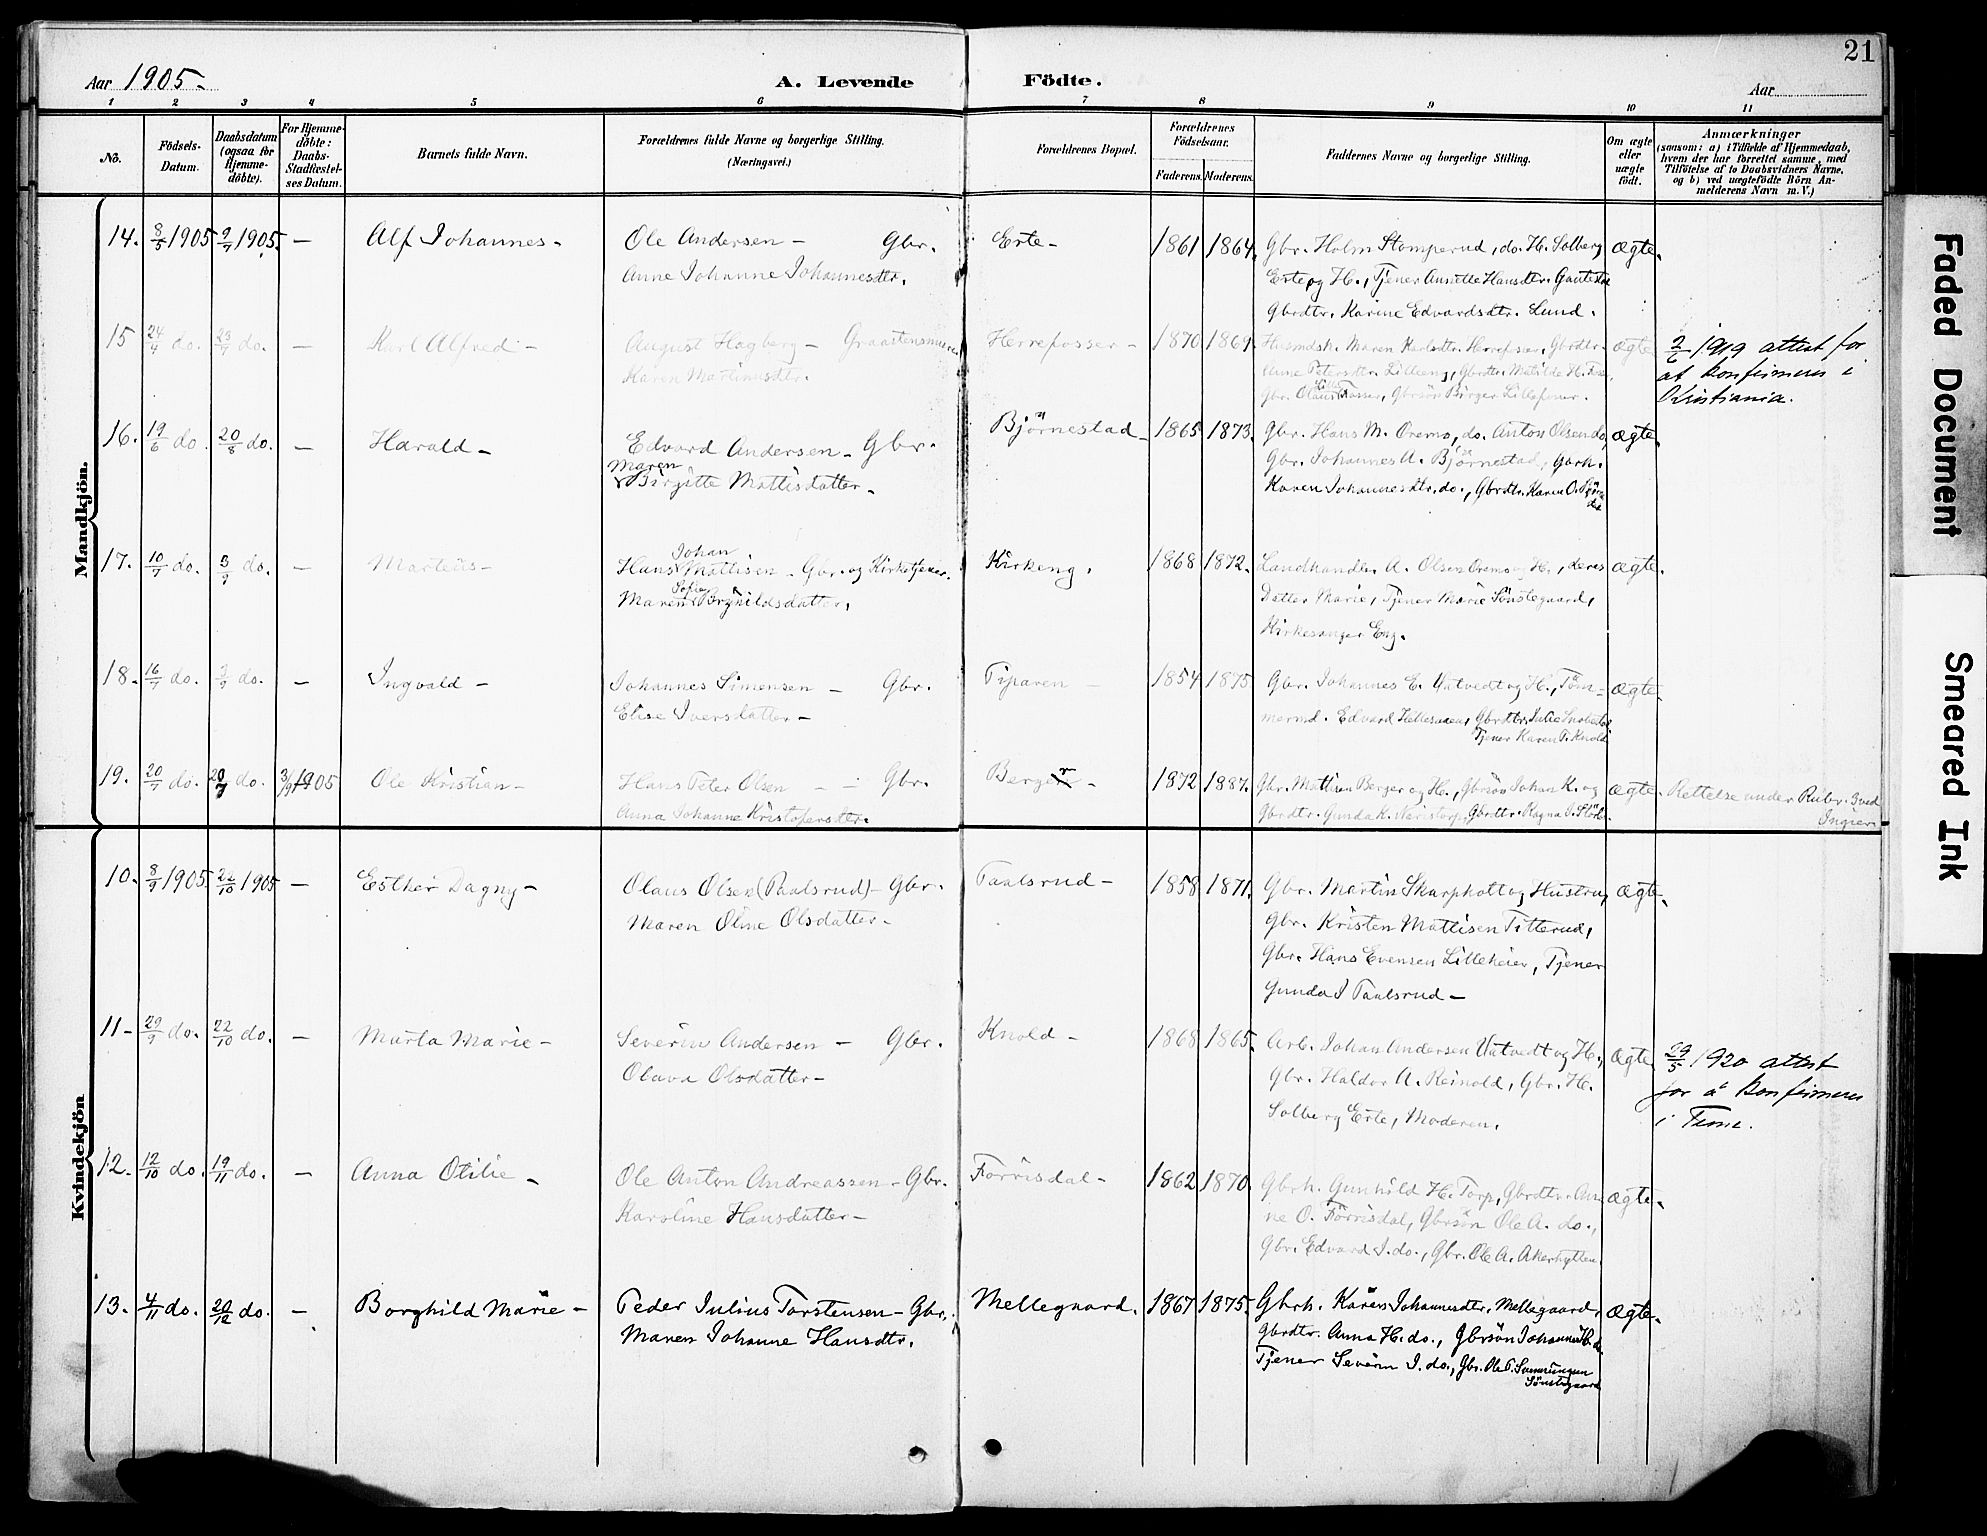 21
Aar 1905.
A. Levende Födte.
Aar
1 2 3 4 5 6 7 8 9 10 11
No.
Födsels-Datum.
Daabsdatum (ogsaa for Hjemme-döbte).
For Hjemme-döbte: Daabs-Stadfæstel-ses Datum.
Barnets fulde Navn.
Forældrenes fulde Navne og borgerlige Stilling.
(Næringsvei.)
Forældrenes Bopæl.
Forældrenes Födselsaar.
Faderens. Moderens.
Faddernes Navne og borgerlige Stilling.
Om ægte eller uægte født.
Anmærkninger
(saasom: a) i Tilfælde af Hjemmedaab,
hvem der har forrettet samme, med
Tilföielse af to Daabsvidners Navne,
og b) ved uægtefödte Börn An-
melderens Navn m. V.)
Mandkjön.
14. 8/5 1905 9/7 1905. — Alf Johannes - Ole Andersen - Gbr. Erte - 1861 1864. Gbr. Holm Stomperud, do. H. Solberg ægte.
Anne Johanne Johannesdtr. Erte og H., Tjener Annette Hansdtr.
Gbrdtr. Karine Edvardsdtr. Lund.
15 24/4 do. 23/7 do. — Karl Alfred - August Hagberg - Herrefosser - 1870 1869. Husmdsk. Maren Karlsdtr. Herrefosser, Gbrdtr. ægte 2/6 1919 attest for
Karen Martinusdtr. Anne Petersdtr. Lilleeng, Gbrdtr. Matilde H. at konfirmeres i
Gbr. Olaus Lillefosser, Gbrsön Birger Lillefosser. Kristiania.
16. 19/6 do. 20/8 do. — Harald - Edvard Andersen - Gbr. Björnestad - 1865 1873. Gbr. Hans M. Oremo, do. Anton Olsen do, ægte.
Maren Birgitte Mattisdatter - Gbr. Johannes A. Björnestad, Gbrk.
Karen Johannesdtr. do., Gbrdtr. Karen O.
17. 10/7 do. 3/9 do. — Marteus - Hans Johan Mattisen - Gbr. og Kirketjener. Kirkeng. 1868 1872. Landhandler A. Olsen Oremo og H., deres ægte.
Maren Sofie Brynildsdatter. Datter Marie, Tjener Marie Sönstegaard,
Kirkesanger Eng.
18. 16/7 do. 3/9 do. — Ingvald - Johannes Simensen - Gbr. Tiparen - 1854 1875 Gbr. Johannes E. Uatvedt og H., Töm- ægte.
Elise Iversdatter - mermd. Edvard Gbrdtr. Julie
Tjener Karen T. Knold
19. 20/7 do. 20/7 do. 3/9 1905 Ole Kristian - Hans Peter Olsen - Gbr. Berger - 1872 1887. Gbr. Mattisen Berger og H., Gbrsön Johan K. og ægte. Rettelse under Rubr. 3 ved
Anna Johanne Kristofersdtr. Gbrdtr. Gunda K. Gbrdtr. Ragna J. Ingier.
Kvindekjön
10. 8/9 1905. 22/10 1905 — Esther Dagny - Olaus Olsen (Paalsrud) - Gbr. Paalsrud - 1858 1871. Gbr. Martin Skarpholt og Hustru, ægte.
Maren Oline Olsdatter - Gbr. Kristen Mattisen Titterud,
Gbr. Hans Evensen Lilleheier, Tjener
Gunda J Paalsrud -
11 - 29/9 do. 22/10 do. — Marta Marie - Severin Andersen - Gbr. Knold - 1868 1865. Arb. Johan Andersen Uatvedt og H., ægte 29/5 1920 attest
Olava Olsdatter - Gbr. Haldor A. Reinold, Gbr. H. for å konfirmeres
Solberg Erte, Moderen. i Time.
12. 12/10 do. 19/11 do. — Anna Otilie - Ole Anton Andreassen - Gbr. Förrisdal - 1862 1870. Gbrk. Gunhild H. Torp, Gbrdtr. An- ægte.
Karoline Hansdatter - ne O. Förrisdal, Gbrsön Ole A. do.,
Gbr. Edvard J. do., Gbr. Ole A. Akerhytten
13. 4/11 do. 20/12 do. — Borghild Marie - Peder Julius Torstensen - Gbr. Mellegaard. 1867 1875. Gbrk. Karen Johannesdtr. Mellegaard, ægte.
Maren Johanne Hansdtr. Gbrdtr. Anna H. do., Gbrsön Johannes H. do.
Tjener Severin J. do., Gbr. Ole T.
Sönstegaard
Faded Document
Smeared Ink